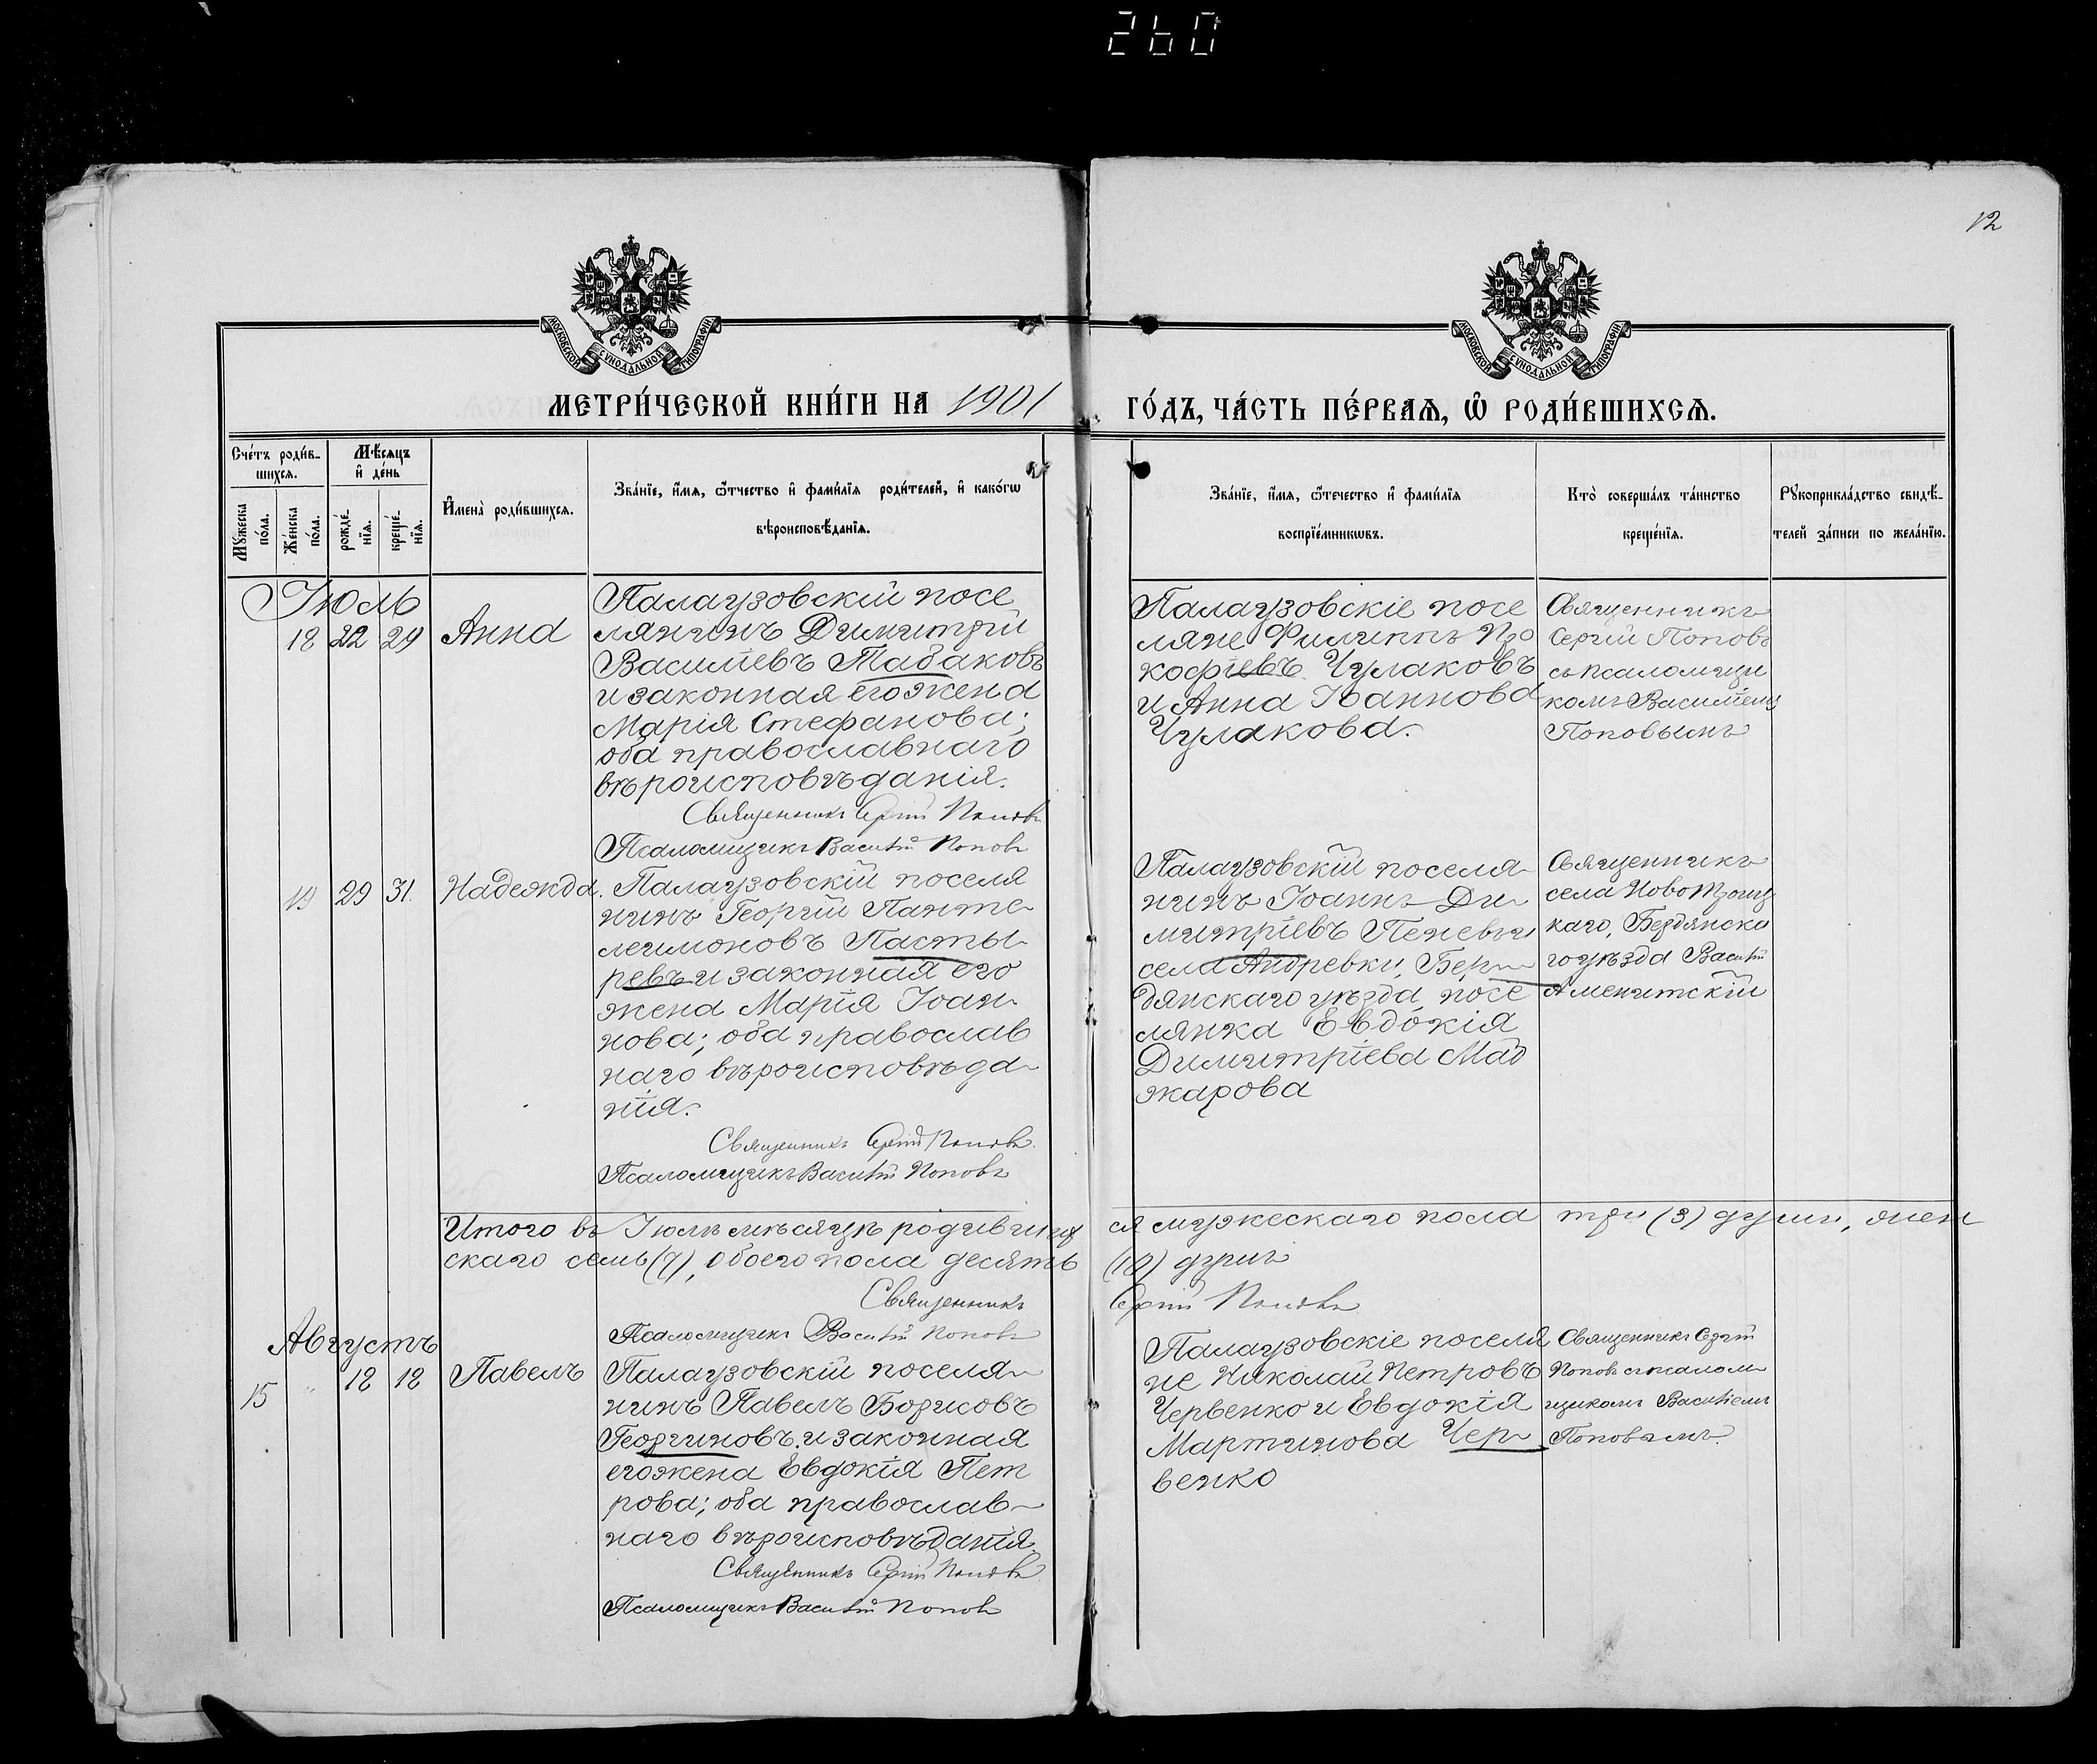 260
12
МОСКОВСКОЙ СѴНОДАЛЬНОЙ ТИПОГРАФІИ
МОСКОВСКОЙ СѴНОДАЛЬНОЙ ТИПОГРАФІИ
МЕТРИ́ЧЕСКОЙ КНИ́ГИ НА 1901
ГО́ДЪ, ЧА́СТЬ ПЕ́РВАѦ, Ѽ РОДИ́ВШИХСѦ.
Сче́тъ роди́в-
шихсѧ.
Мѣ́сѧцъ
и҆ де́нь
Мꙋ́жеска
по́ла.
Же́нска
по́ла.
рожде́-
нїѧ.
креще́-
нїѧ.
И҆мена̀ роди́вшихсѧ.
Зва́нїе, и҆́мѧ, ѻ҆́тчество и҆ фами́лїѧ роди́телей, и҆ како́гѡ
вѣроисповѣ́данїѧ.
Зва́нїе, и҆́мѧ, ѻ҆́течество и҆ фами́лїѧ
воспрїе́мникѡвъ.
Кто̀ соверша́лъ та́инство
креще́нїѧ.
Рꙋкоприкла́дство свидѣ́-
телей за́писи по жела́нїю.
Іюль
18 22 29 Анна
Палаузовскій посе
лянинъ Димитрій
Васильевъ Табаковъ
и законная его жена
Марія Стефанова;
оба православнаго
вѣроисповѣданія.
Священникъ Сергій Поповъ
Псаломщикъ Василій Поповъ
Палаузовскіе посе
ляне Филиппъ Про
кофіевъ Чулаковъ
и Анна Іоаннова
Чулакова.
Священникъ
Сергій Поповъ
съ псаломщи
комъ Василіемъ
Поповымъ
19 29 31. Надежда.
Палаузовскій поселя
нинъ Георгій Панте-
леимоновъ Пасты-
ревъ и законная его
жена Марія Іоан-
нова; оба православ
наго вѣроисповѣда-
нія.
Священникъ Сергій Поповъ.
Псаломщикъ Василій Поповъ
Палаузовскій поселя-
нинъ Іоаннъ Ди-
митріевъ Пеневъ и
села Андревки, Бер-
дянскаго уѣзда, посе
лянка Евдокія
Димитріева Мад
жарова
Священникъ
села НовоТроиц
каго, Бердянска
го уѣзда Василій
Аменитскій
Итого въ Іюлѣ мѣсяцѣ родивших
ся мужескаго пола три (3) души, жен
скаго семь (7), обоего пола десять
(10) душъ
Священникъ
Сергій Поповъ
Псаломщикъ Василій Поповъ
Августъ
15 " 12 12 Павелъ
Палаузовскій поселя-
нинъ Павелъ Борисовъ
Георгиновъ и законная
его жена Евдокія Пет
рова; оба православ-
наго вѣроисповѣданія.
Священникъ Сергій Поповъ
Псаломщикъ Василій Поповъ
Палаузовскіе поселя
не Николай Петровъ
Червенко и Евдокія
Мартинова Чер-
венко
Священникъ Сергій
Поповъ съ псалом-
щикомъ Василіемъ
Поповымъ.